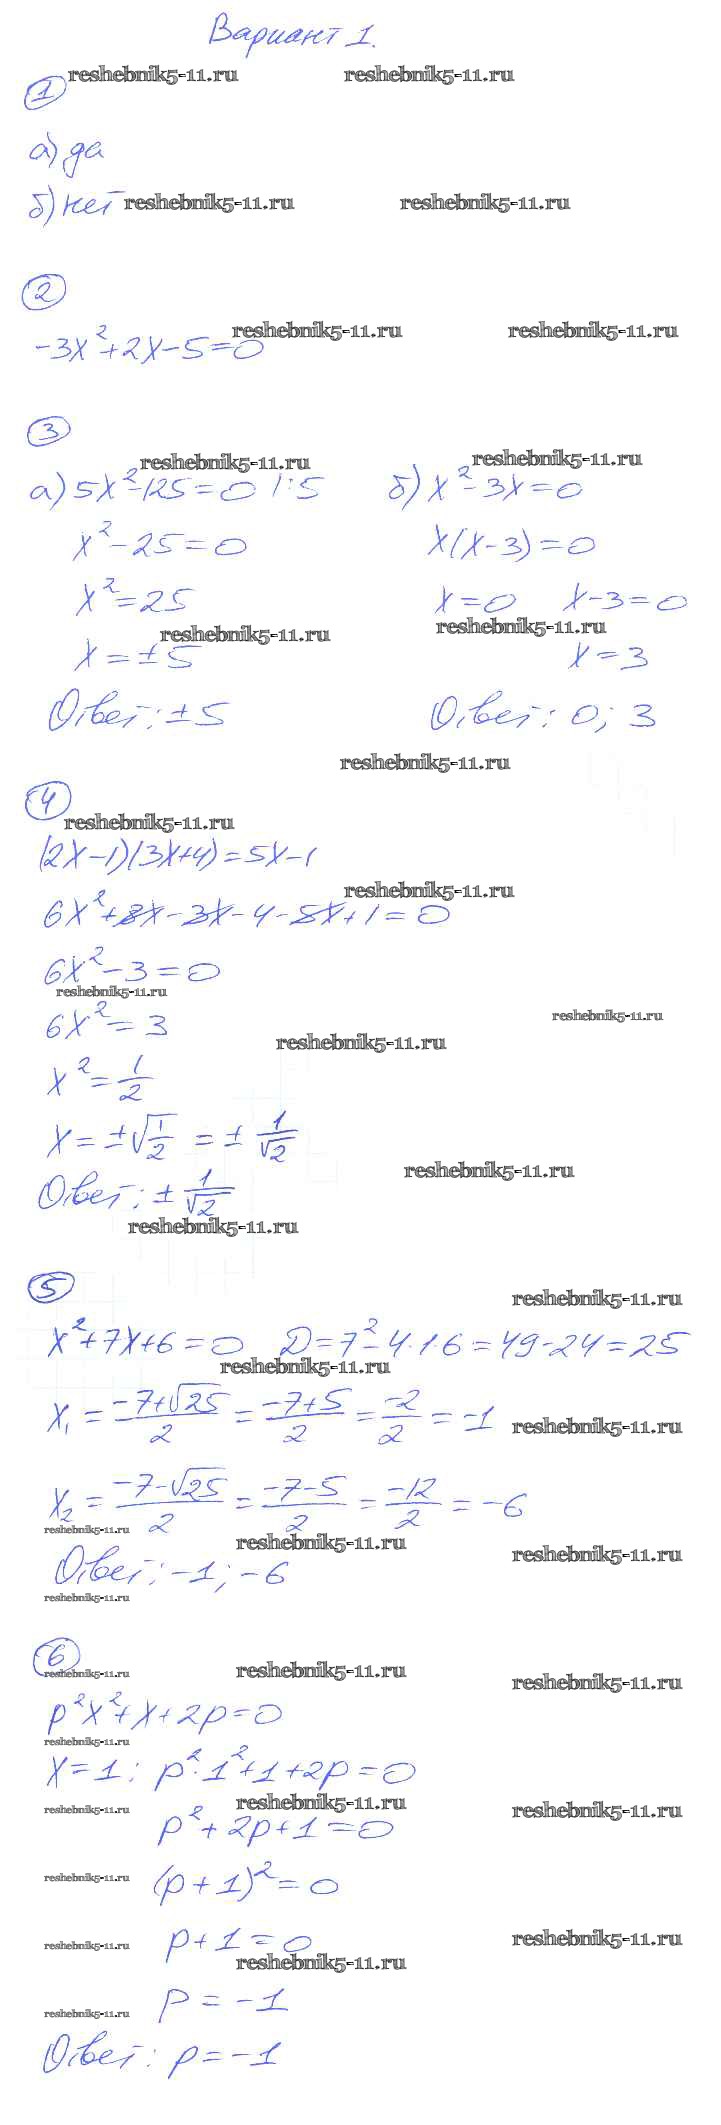 Вариант 1.
reshebnik5-11.ru reshebnik5-11.ru
1
а) да
б) нет reshebnik5-11.ru reshebnik5-11.ru
2
reshebnik5-11.ru reshebnik5-11.ru
-3x²+2x-5=0
3
reshebnik5-11.ru reshebnik5-11.ru
а) 5x²-125=0 |:5 б) x²-3x=0
x²-25=0 x(x-3)=0
x²=25 x=0 x-3=0
reshebnik5-11.ru reshebnik5-11.ru
x=±5 x=3
Ответ: ±5 Ответ: 0; 3
reshebnik5-11.ru
4
reshebnik5-11.ru
(2x-1)(3x+4)=5x-1
reshebnik5-11.ru
6x²+8x-3x-4-5x+1=0
6x²-3=0
reshebnik5-11.ru
6x²=3 reshebnik5-11.ru
reshebnik5-11.ru
x²=1/2
x=±√1/2 = ±1/√2
reshebnik5-11.ru
Ответ: ±1/√2
reshebnik5-11.ru
5
reshebnik5-11.ru
x²+7x+6=0 D=7²-4·1·6=49-24=25
reshebnik5-11.ru
x₁ = (-7+√25)/2 = (-7+5)/2 = -2/2 = -1
reshebnik5-11.ru
x₂ = (-7-√25)/2 = (-7-5)/2 = -12/2 = -6
reshebnik5-11.ru reshebnik5-11.ru reshebnik5-11.ru
Ответ: -1; -6
reshebnik5-11.ru
6
reshebnik5-11.ru reshebnik5-11.ru reshebnik5-11.ru
p²x²+x+2p=0
reshebnik5-11.ru
x=1: p²·1²+1+2p=0
reshebnik5-11.ru reshebnik5-11.ru reshebnik5-11.ru
p²+2p+1=0
reshebnik5-11.ru (p+1)²=0
reshebnik5-11.ru p+1=0 reshebnik5-11.ru
reshebnik5-11.ru
reshebnik5-11.ru p=-1
Ответ: p=-1